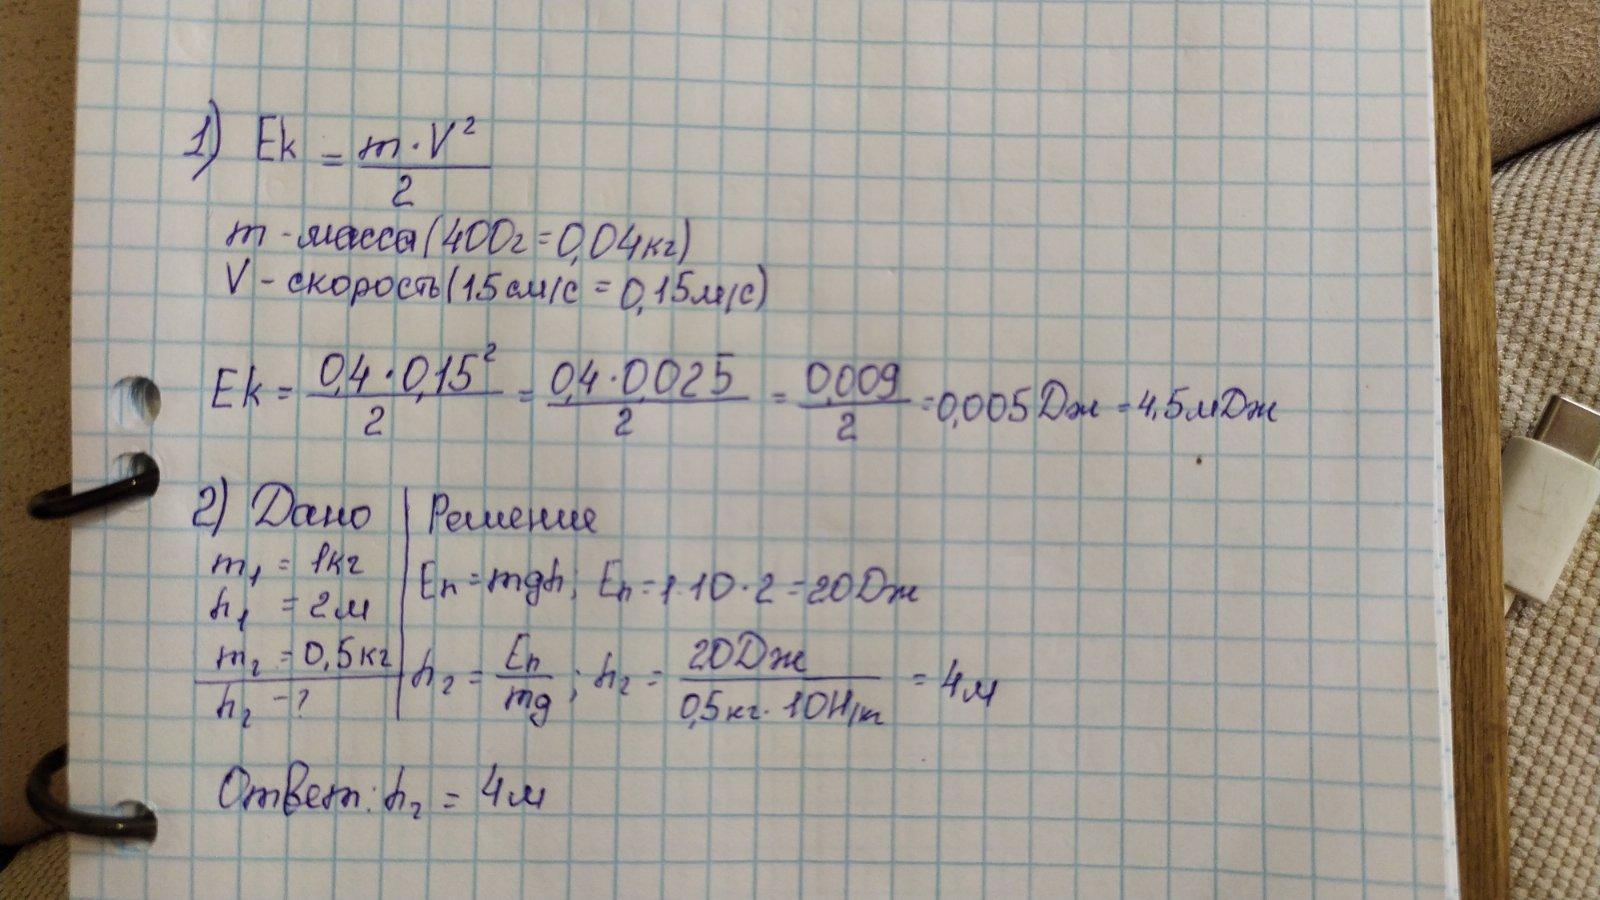 1) Ek = m·V² / 2
m - масса (400г = 0,04кг)
V - скорость (15см/с = 0,15м/с)
Ek = 0,4·0,15² / 2 = 0,4·0,025 / 2 = 0,009 / 2 = 0,005Дж = 4,5мДж
2) Дано | Решение
m₁ = 1кг
h₁ = 2м | Eп = mgh; Eп = 1·10·2 = 20Дж
m₂ = 0,5кг
h₂ - ? | h₂ = Eп / mg; h₂ = 20Дж / 0,5кг·10Н/кг = 4м
Ответ: h₂ = 4м